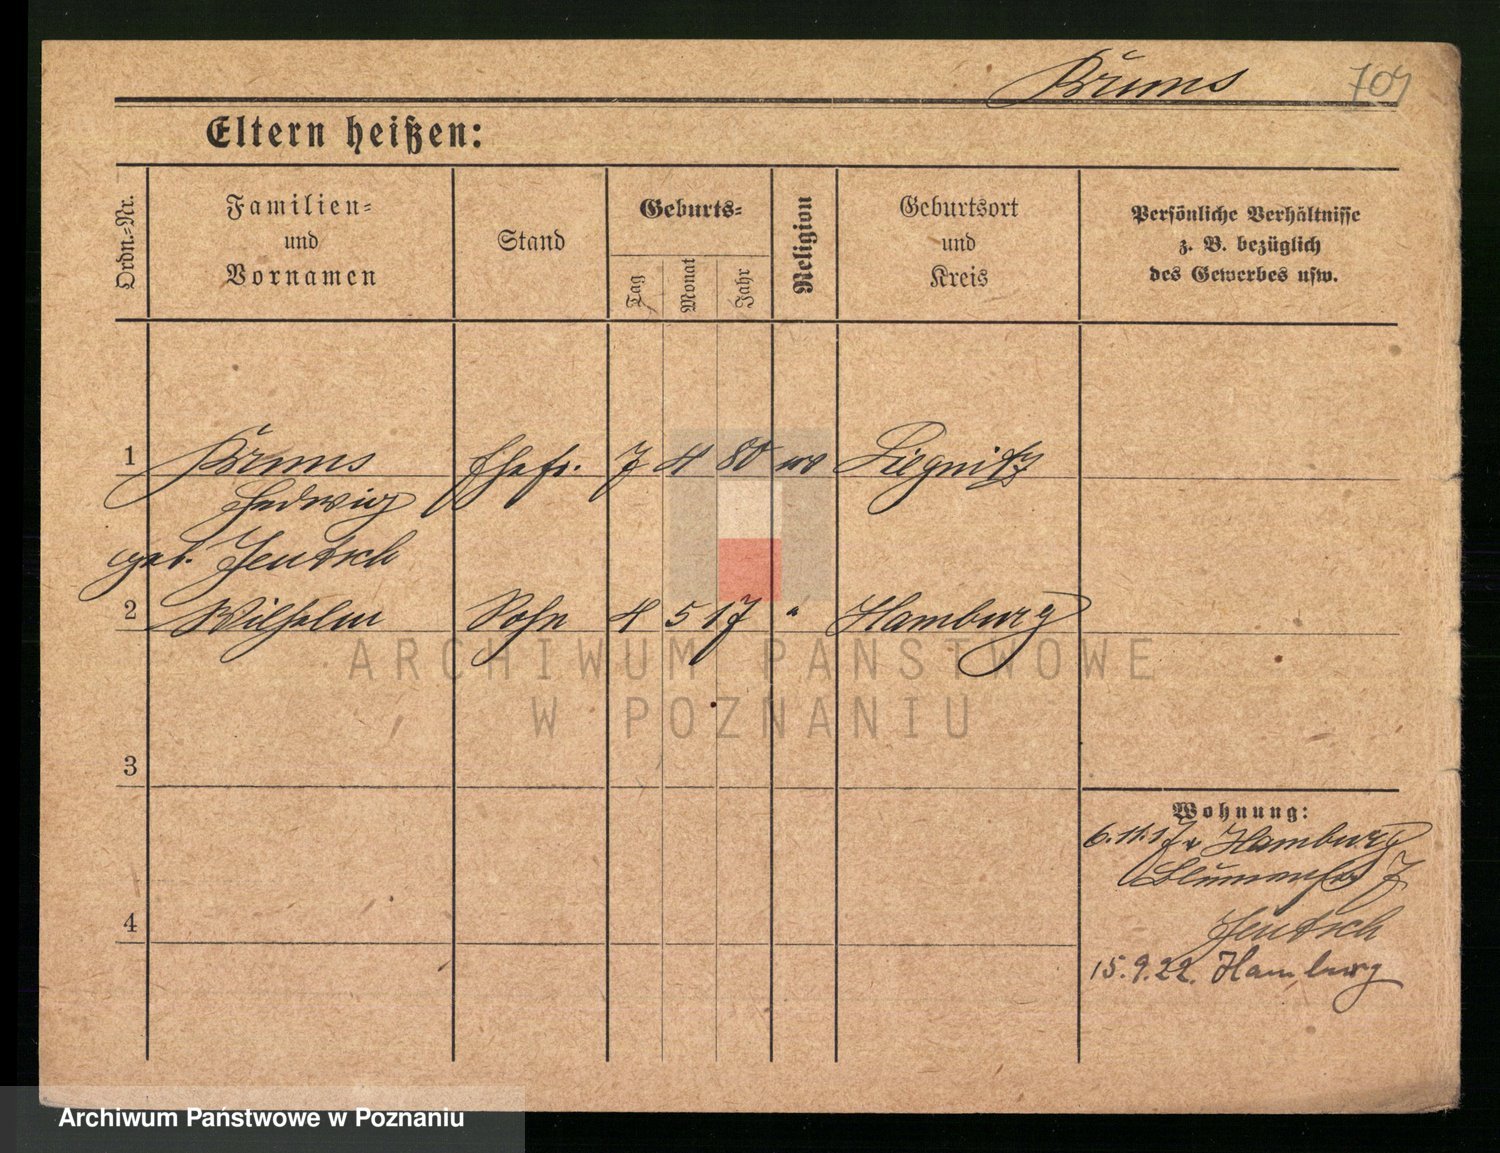 Krüms 709
Eltern heißen:
Ordn.-Nr.
Familien-
und
Vornamen
Stand
Geburts-
Tag
Monat
Jahr
Religion
Geburtsort
und
Kreis
Persönliche Verhältnisse
z. B. bezüglich
des Gewerbes usw.
1 Krüms Ehefr. 7 4 80 ev Liegnitz
Hedwig
geb. Jentsch
2 Wilhelm Sohn 4 5 17 " Hamburg
3
4
Wohnung:
6.11.17 v Hamburg
7
Jentsch
15.9.22. Hamburg
ARCHIWUM PAŃSTWOWE
W POZNANIU
Archiwum Państwowe w Poznaniu